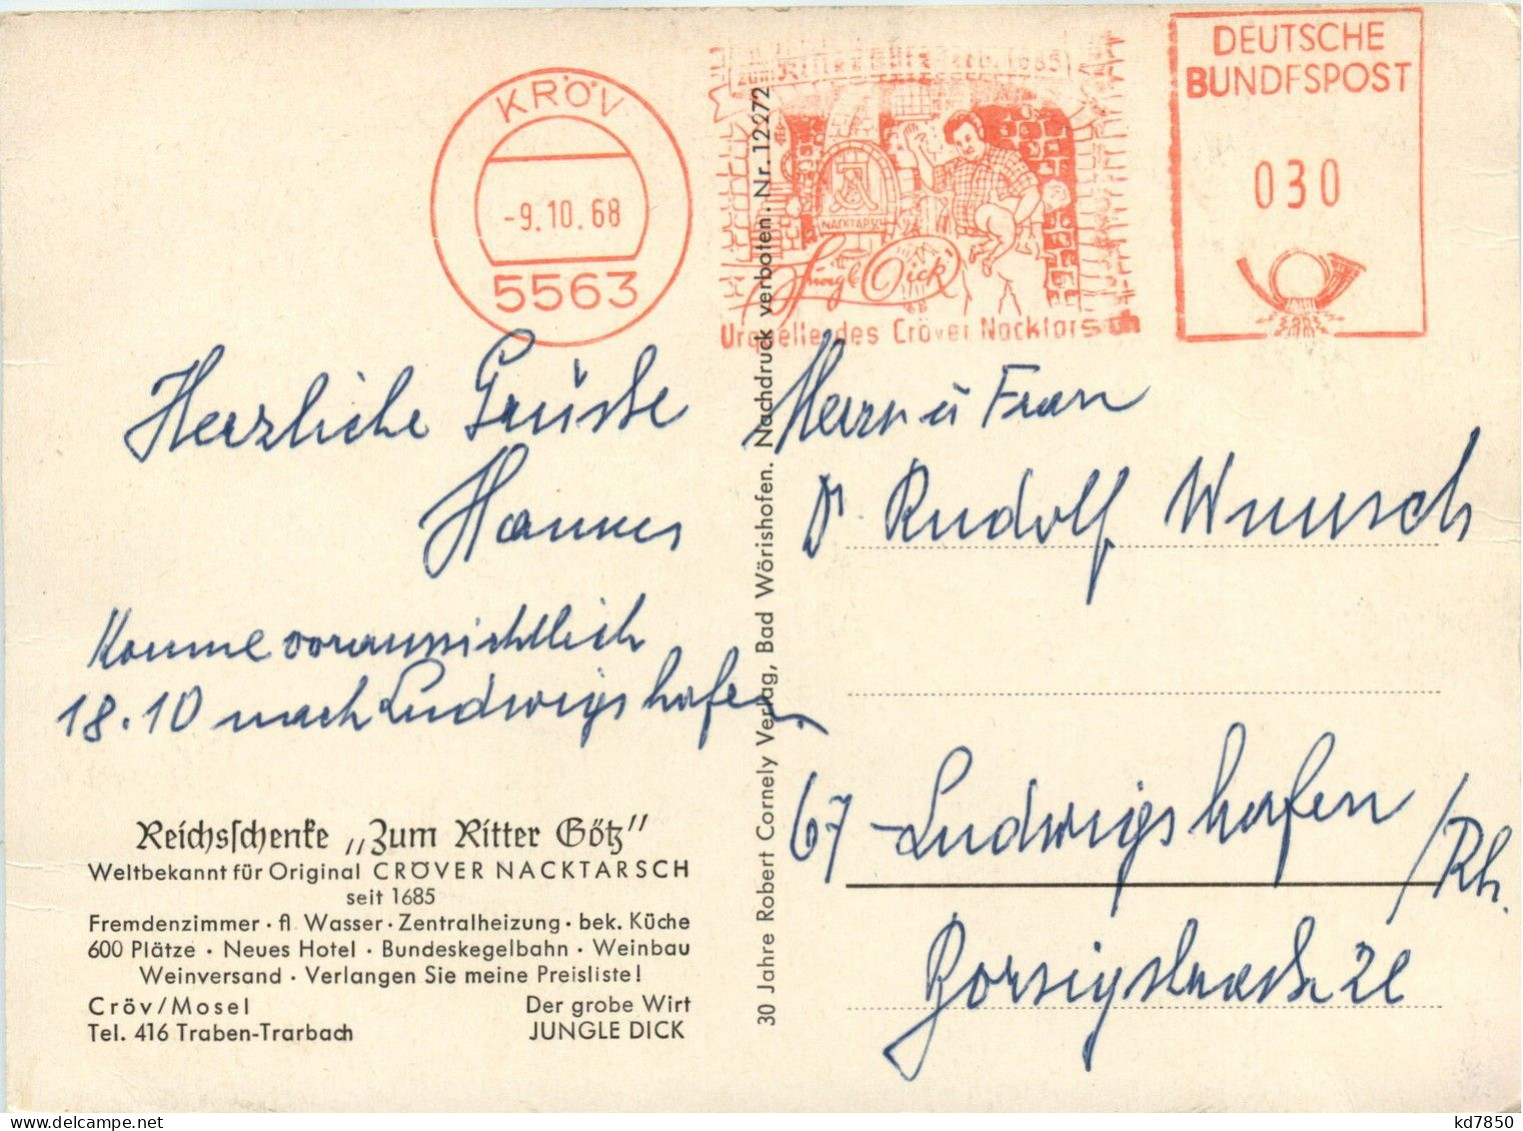 KRÖV
-9.10.68
5563
NACKTARSCH
Jungle Dick
des Cröver Nacktarsch
DEUTSCHE
BUNDESPOST
030
Herzliche Grüße
Hannes
Komme voraussichtlich
18.10 nach Ludwigshafen.
Reichsschenke „Zum Ritter Götz"
Weltbekannt für Original CRÖVER NACKTARSCH
seit 1685
Fremdenzimmer · fl. Wasser · Zentralheizung · bek. Küche
600 Plätze · Neues Hotel · Bundeskegelbahn · Weinbau
Weinversand · Verlangen Sie meine Preisliste!
Cröv/Mosel Der grobe Wirt
Tel. 416 Traben-Trarbach JUNGLE DICK
30 Jahre Robert Cornely Verlag, Bad Wörishofen. Nachdruck verboten. Nr. 12272
Herrn u Frau
Dr. Rudolf Wunsch
67 Ludwigshafen /Rh.
Borsigstraße 22
kd7850